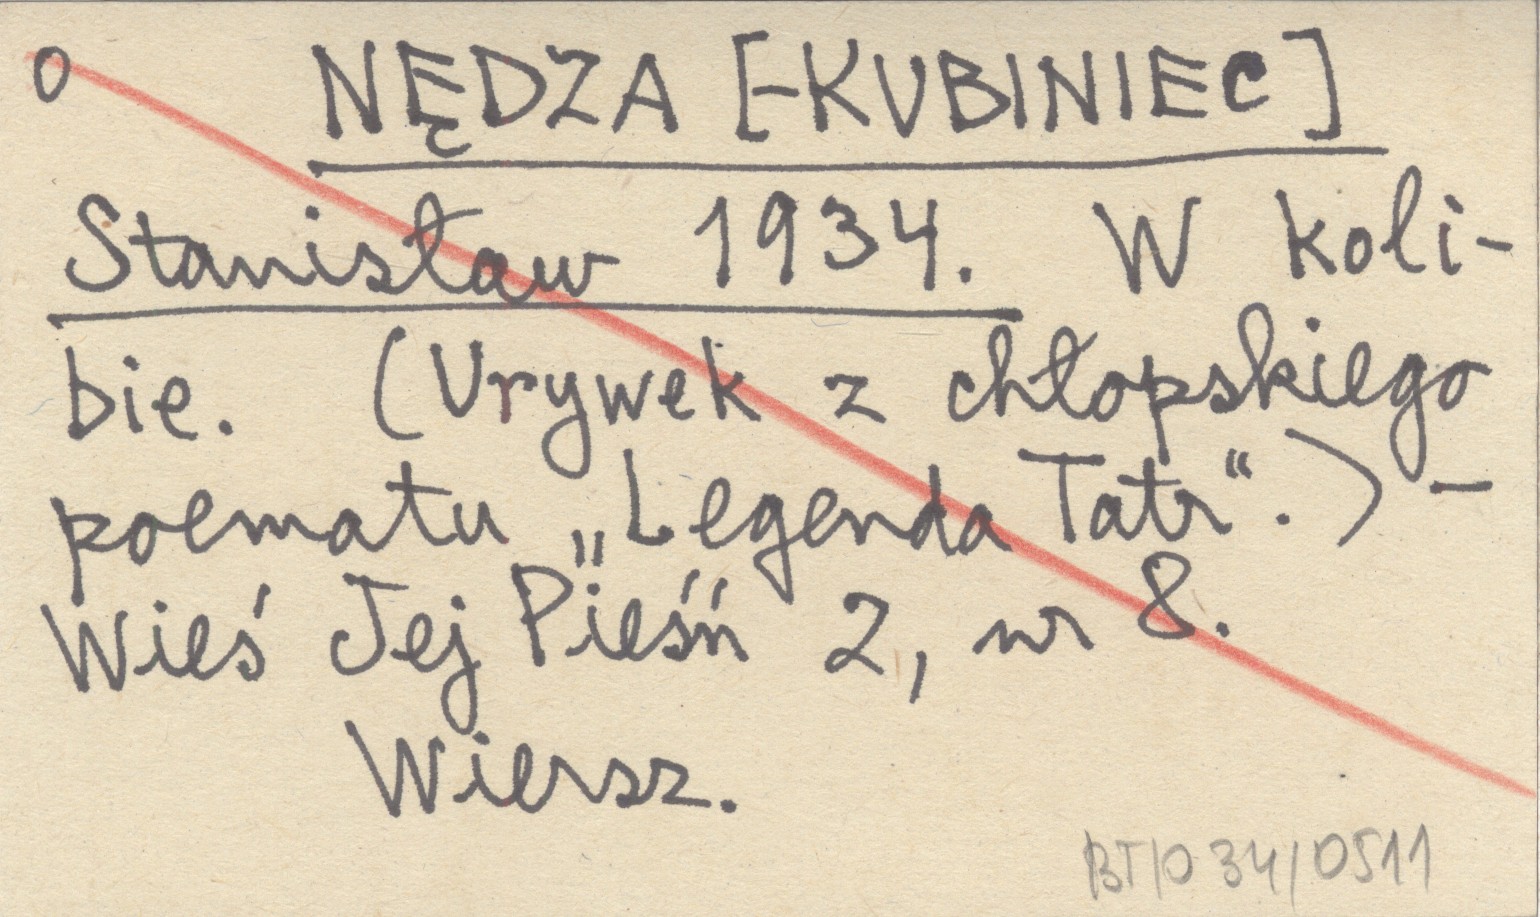 O NĘDZA [-KUBINIEC]
Stanisław 1934. W koli-
bie. (Urywek z chłopskiego
poematu „Legenda Tatr“.) -
Wieś Jej Pieśń 2, nr 8.
Wiersz.
BT/O 34/0511